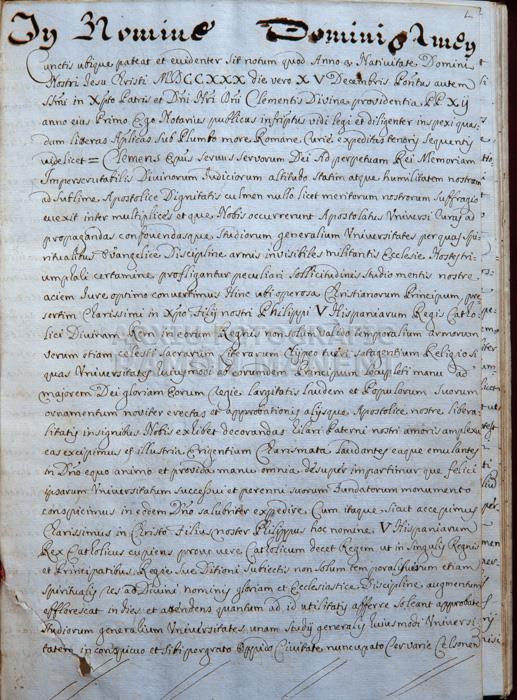 In Nomine Domini Amen
Cunctis ubique pateat et evidenter sit notum quod Anno a Nativitate Domini
Nostri Jesu Christi MDCCXXX die vero XV Decembris Pontus autem
Ssmi in Xpto Patris et Dni Nri Dni Clementis Divina providentia PP XIJ
anno eius Primo Ego Notarius publicus infriptus vidi legi et diligenter inspexi quas
dam liberas Aplicas sub Plumbo more Romane Curie expeditas tenoris sequentis
videlicet = Clemens Epus servus servorum Dei Ad perpetuam Rei Memoriam
Imperscrutabilis Divinorum Iudiciorum altitudo statim atque humilitatem nostram
ad sublime Apostolice Dignitatis culmen nullo licet meritorum nostrorum suffragio
evexit inter multiplices et que Nobis occurrerunt Apostolatus Universi curas ad
propagandas confovendasque studiorum generalium Universitates per quas spi
ritualibus Evangelice Discipline armis invisibiles militantis Ecclesie Hostes tri
umphali certamine profligantur peculiari sollicitudinis studio mentis nostre
aciem Iure optimo convertimus Hinc ubi operosa Christianorum Principum pre
sertim Clarissimi in Xpo Filij nostri Philippi V Hispaniarum Regis Catho
lici Divinam Rem suorum Regnis non solum valido temporalium armorum
verum etiam celesti sacrarum literarum Clypeo tuta satagentium Religio si
quas Universitates huiusmodi ab eorundem Principum locupleti manu ad
majorem Dei gloriam eorum Regie largitatis laudem et Populorum suorum
ornamentum noviter erectas et approbationis alijsque Apostolice nostre libera
litatis insignibus Nobis exhibet decorandas hilari Paterni nostri amoris amplexu
eas excipimus et illustria Erigentium Charismata laudantes eaque emulantes
in Dno equo animo et provida manu omnia desuper impartimur que felici
ipsarum Universitatum successui et perenni suorum fundatorum monumento
conspicimus in eodem Dno salubriter expedire Cum itaque sicut accepimus
Clarissimus in Christo Filius noster Philippus hoc nomine V Hispaniarum
Rex Catholicus cupiens prout vere Catholicum decet Regem ut in singulis Regnis
et Principatibus Regie sue Ditioni subiectis non solum temporalis verum etiam
spiritualis res ad Divini nominis gloriam et Ecclesiastice Discipline augmentum
efflorescat in dies et attendens quantum ad id utilitatis afferre soleant approbate
studiorum generalium Universitates, unam studij generalis huiusmodi Universi
tatem in conspicuo et sibi pergrato Oppido Civitate nuncupato Cervarie Celsonen